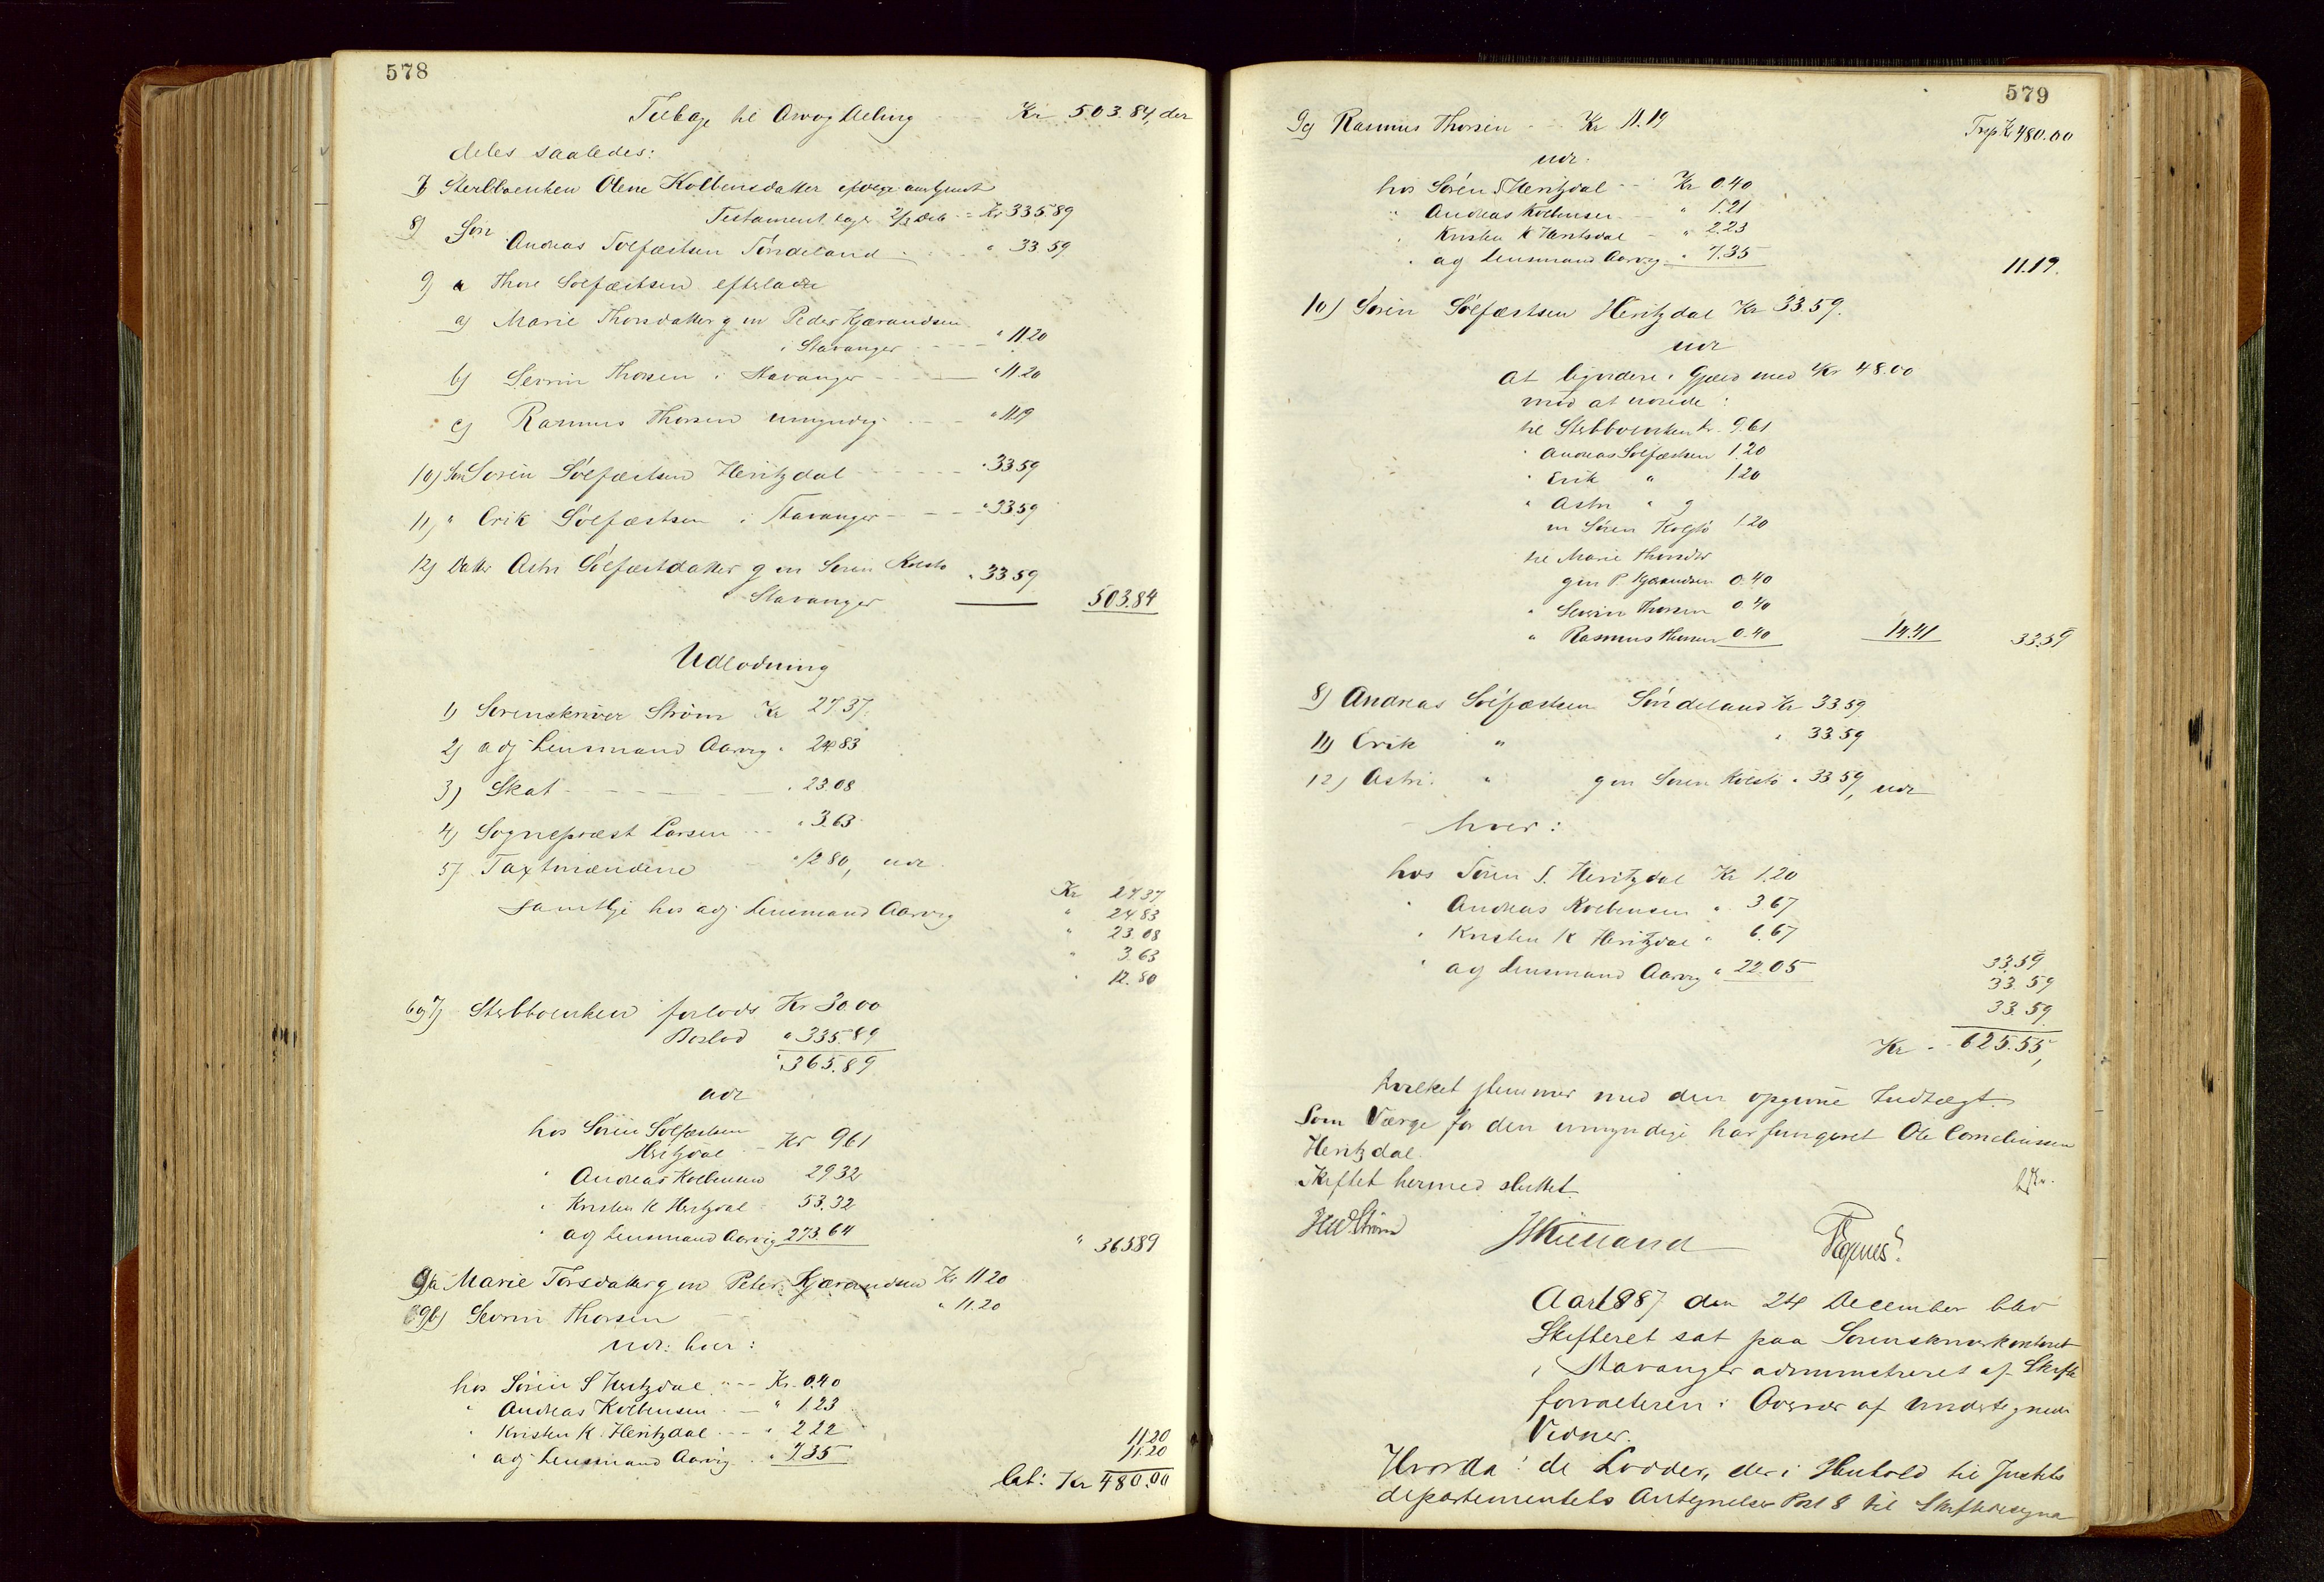 578
Tilbage til Arv og Deling Kr 503.84, der
deles saaledes:
7) Sterbboenken Olene Kolbensdatter ifølge
Testament tager 2/3 Kr 335.89
8) Søn Andreas Sølfæstsen Søndeland " 33.59
9) a Thore Sølfæstsen efterladte
a) Marie Thorsdatter g m Peder Kjærandsen
i Stavanger " 11.20
b) Sevrin Thorsen i Stavanger " 11.20
c) Rasmus Thorsen umyndig " 11.19
10) Søn Søren Sølfæstsen Heritzdal " 33.59
11) " Erik Sølfæstsen i Stavanger " 33.59
12) Datter Astri Sølfæstdatter g m Søren Kolstø
Stavanger " 33.59 503.84
Udlodning
1) Sorenskriver Strøm Kr 27.37
2) adj Lensmand Aarvig " 24.83
3) Skat " 23.08
4) Sognepræst Larsen " 3.63
5) Taxtmændene " 12.80, udl
samtlige hos adj Lensmand Aarvig Kr 27.37
" 24.83
" 23.08
" 3.63
" 12.80
6 og 7) Sterbboenken forlods Kr 30.00
Boslod " 335.89
" 365.89
udl
hos Søren Sølfæstsen
Heritzdal Kr 9.61
" Andreas Kolbensen 29.32
" Kristen K Heritzdal 53.32
" adj Lensmand Aarvig 273.64 " 365.89
9a Marie Torsdatter g m Peter Kjærandsen Kr 11.20
9b) Sevrin Thorsen " 11.20
udl: hver:
hos Søren S Heritzdal Kr. 0.40
" Andreas Kolbensen " 1.23
" Kristen K. Heritzdal " 2.22 11.20
" adj Lensmand Aarvig " 7.35 11.20
Lat: Kr 480.00
579
9c) Rasmus Thorsen Kr 11.19 Trsp. Kr 480.00
udl.
hos Søren S Heritzdal Kr 0.40
" Andreas Kolbensen " 1.21
" Kristen K Heritzdal " 2.23
" adj Lensmand Aarvig " 7.35 11.19.
10) Søren Sølfæstsen Heritzdal Kr 33.59.
udl
at liqvidere i Gjæld med Kr 48.00
mod at udrede:
til Sterbboenken Kr 9.61
" Andreas Sølfæstsen 1.20
" Erik " 1.20
" Astri " g
m Søren Kolstø 1.20
til Marie Thorsdtr
g m P. Kjærandsen 0.40
" Sevrin Thorsen 0.40
" Rasmus Thorsen 0.40 14.41 33.59
8) Andreas Sølfæstsen Søndeland Kr 33.59
11) Erik " " 33.59
12) Astri " g m Søren Kolstø " 33.59, udl
hver:
hos Søren S. Heritzdal Kr 1.20
" Andreas Kolbensen " 3.67
" Kristen K Heritzdal " 6.67
" adj Lensmand Aarvig " 22.05 33.59
33.59
33.59
Kr 625.55,
hvilket stemmer med den opgivne Indtægt.
Som Værge for den umyndige har fungeret Ole Corneliussen
Heritzdal.
Skiftet hermed sluttet.
HW Strøm JKielland
Aar 1887 den 24 December blev
Skifteret sat paa Sorenskriverkontoret
i Stavanger administreret af Skifte
forvalteren i Overvær af undertegnede
Vidner.
Hvorda: de Lodder, der i Henhold til Justits
departementets Antegnelser Post 8 til Skiftedesigna